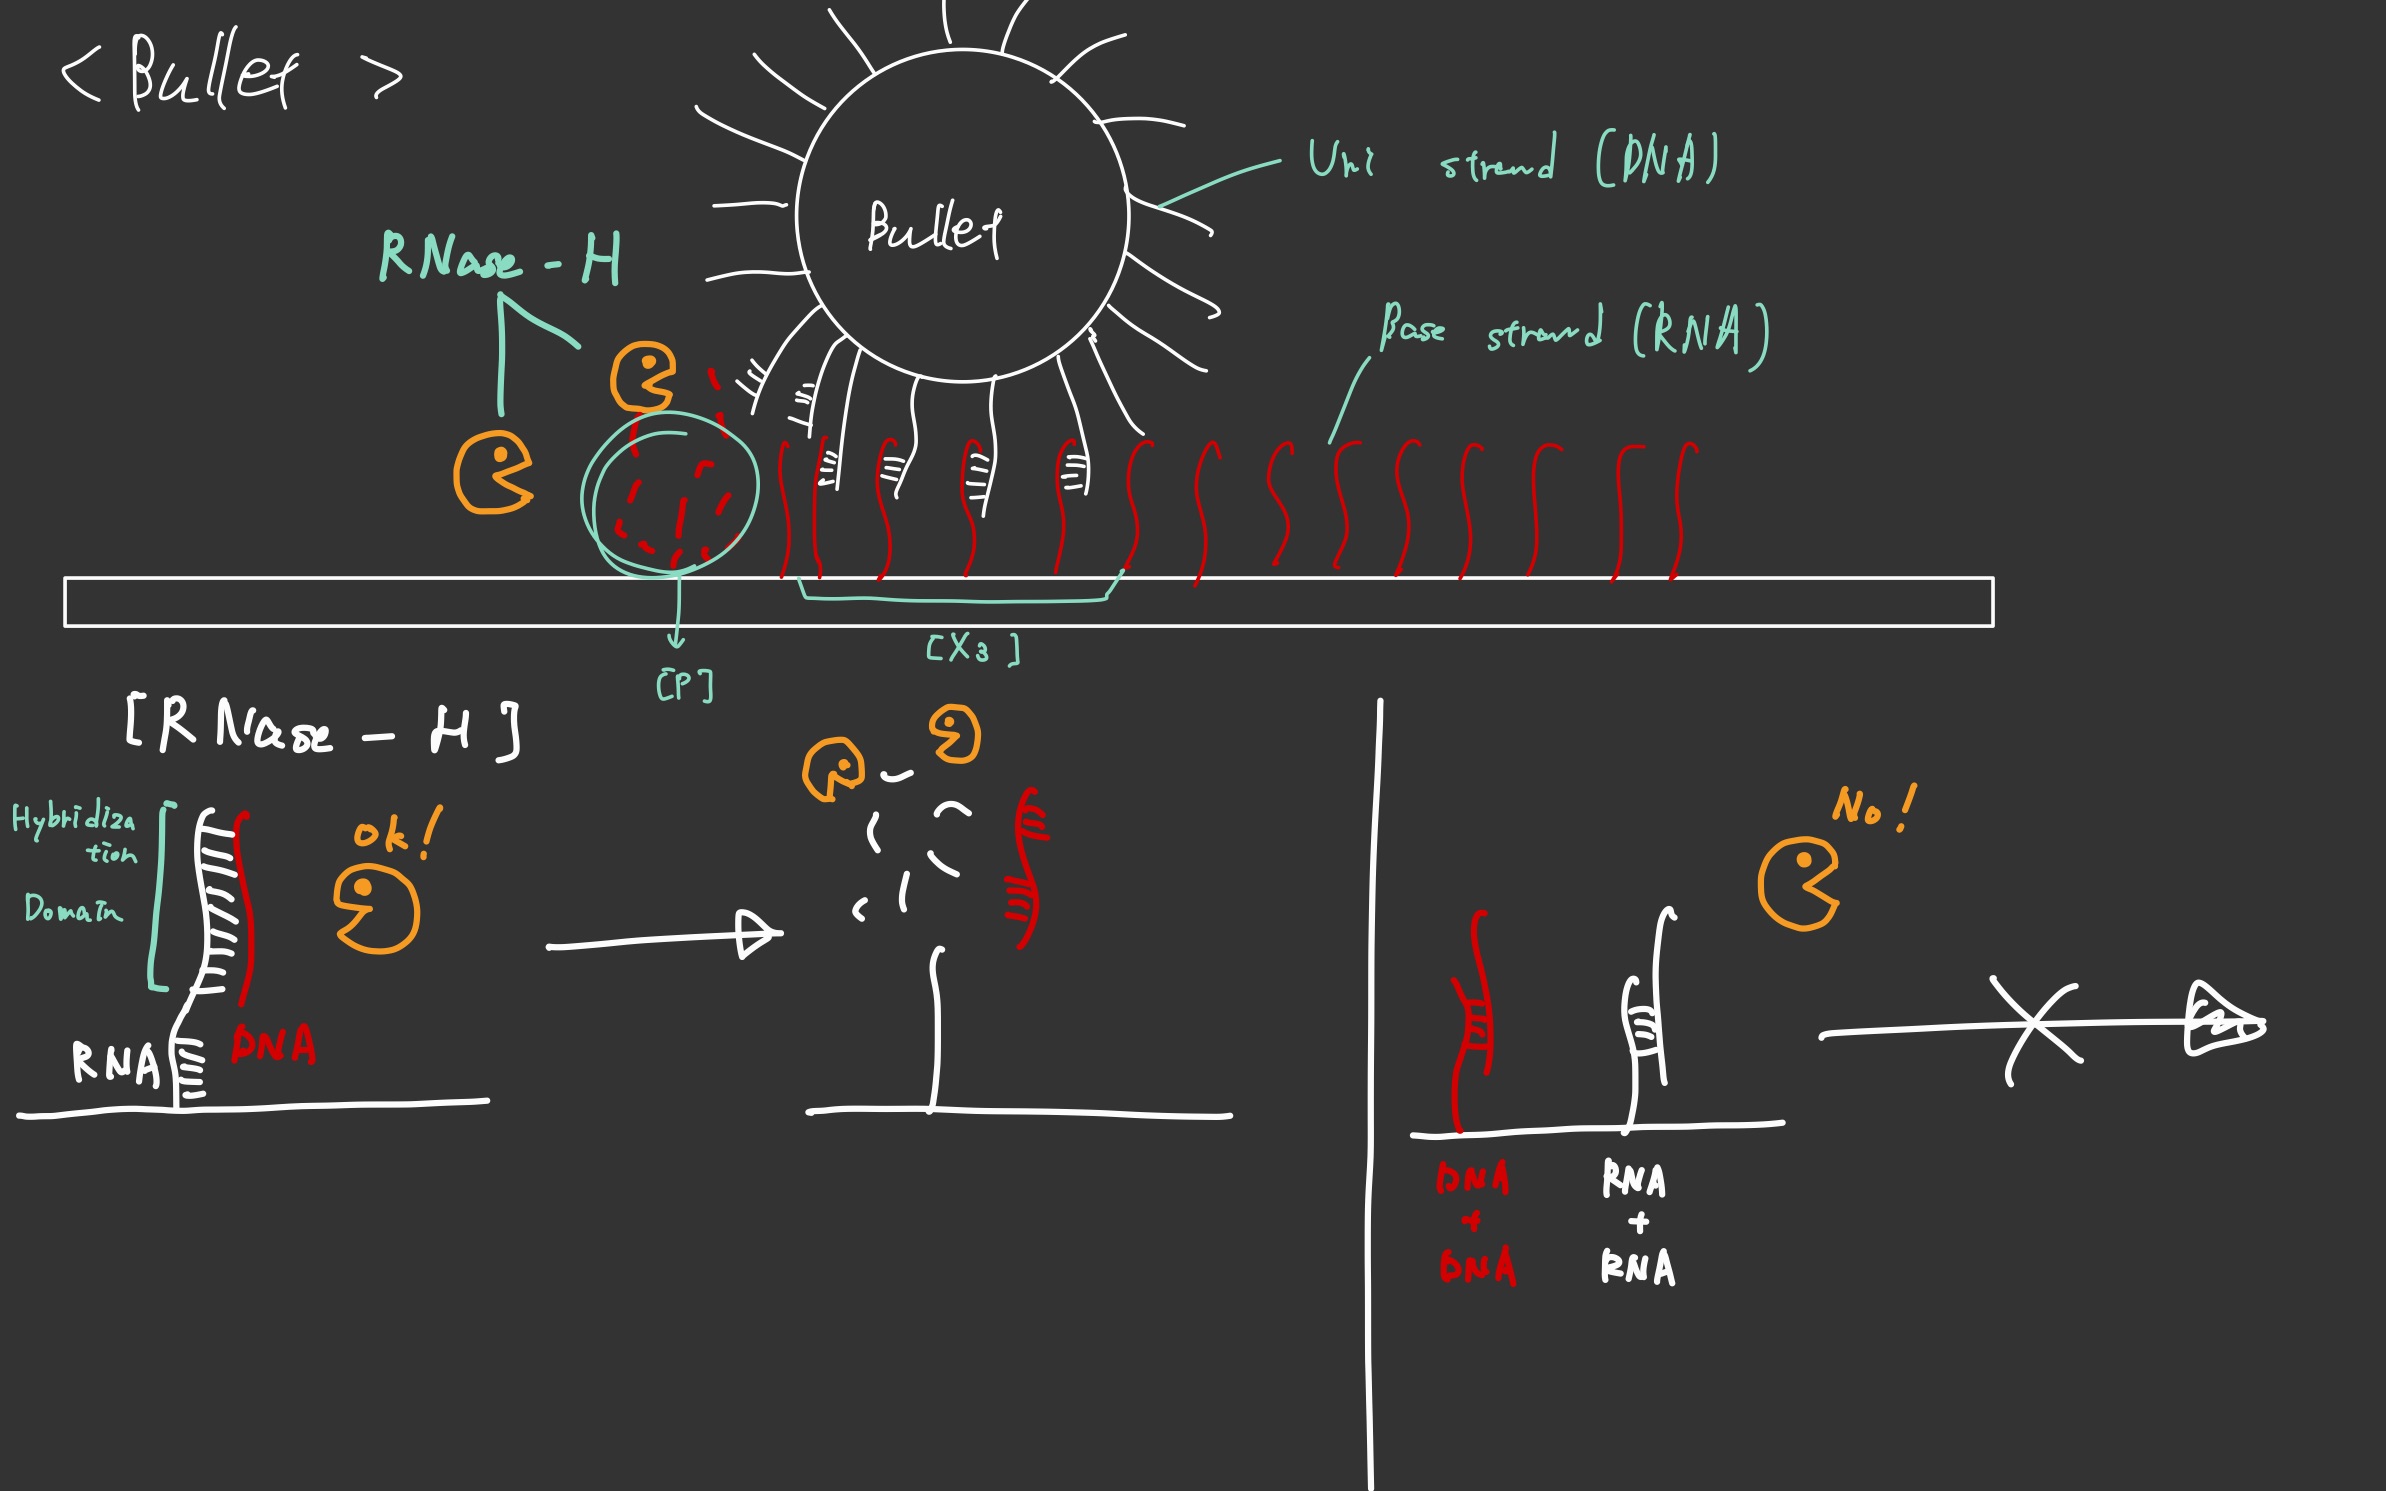 < Bullet >
Uni strand (DNA)
Bullet
RNase - H
Base strand (RNA)
[X3]
[P]
[RNase - H]
Hybridiza
tion
Domain
Ok!
No!
RNA
DNA
DNA
+
DNA
RNA
+
RNA